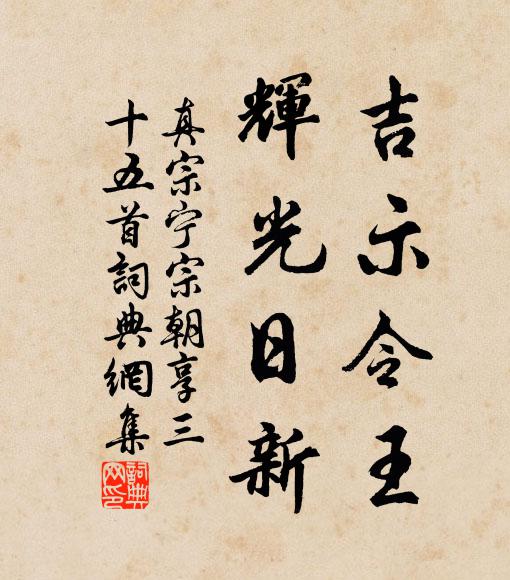 吉示令王
輝光日新
真宗宁宗朝享三
十五首詞典網集
詞典
网印